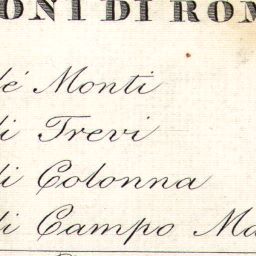 ONI DI ROM
de' Monti
di Trevi
di Colonna
di Campo Ma